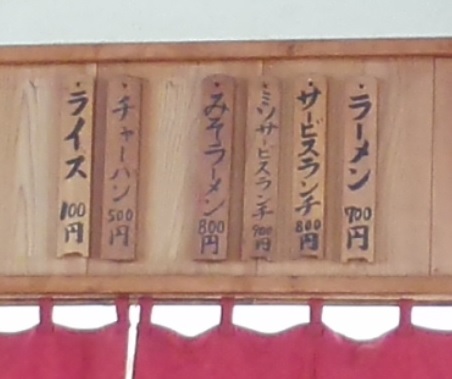 ラーメン 700円
サービスランチ 800円
ミソサービスランチ 900円
みそラーメン 800円
チャーハン 500円
ライス 100円